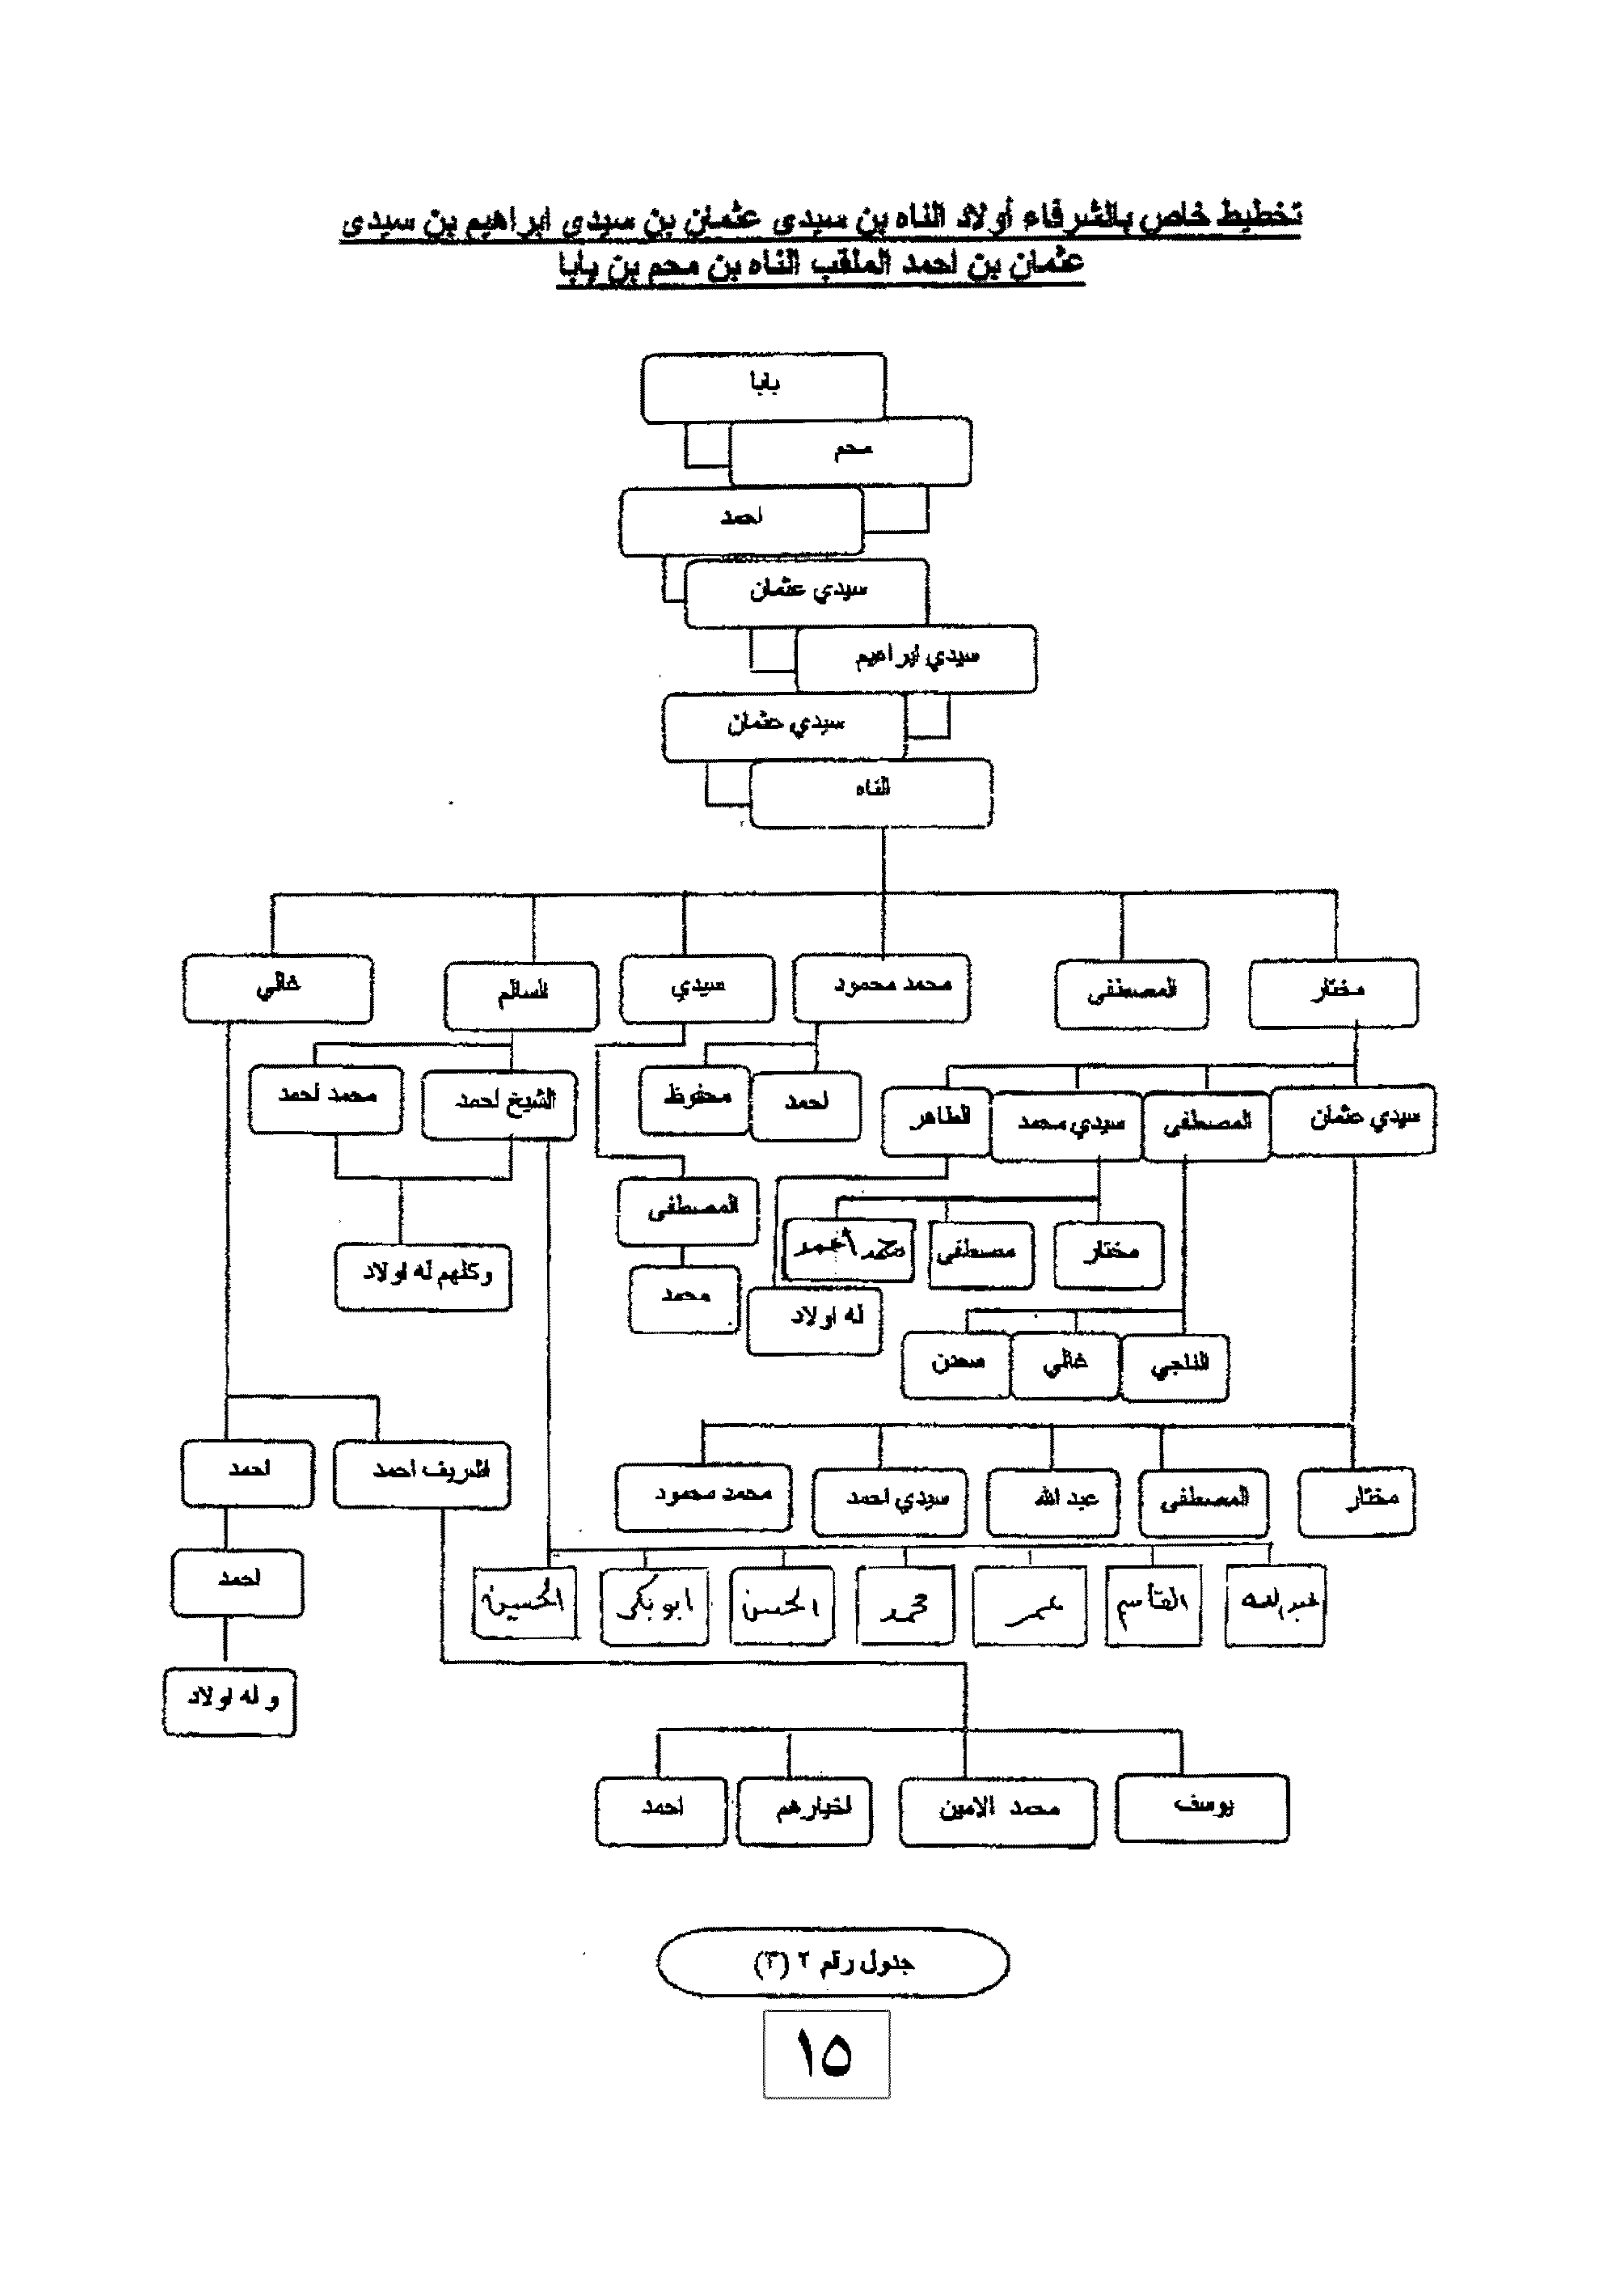 تخطيط خاص بالشرفاء أولاد الناه بن سيدى عثمان بن سيدى ابراهيم بن سيدى
عثمان بن احمد الملقب الناه بن محم بن بابا
بابا
محم
احمد
سيدي عثمان
سيدي ابراهيم
سيدي عثمان
الناه
مختار
المصطفى
محمد محمود
سيدي
السالم
غالي
سيدي عثمان
المصطفى
سيدي محمد
الطاهر
احمد
محفوظ
الشيخ احمد
محمد احمد
المصطفى
مختار
مصطفى
محمد أحمد
وكلهم له اولاد
محمد
له اولاد
الناجي
غالي
سعدن
الشريف احمد
احمد
مختار
المصطفى
عبد الله
سيدي احمد
محمد محمود
احمد
عبد الله
القاسم
عمر
محمد
الحسن
ابوبكر
الحسين
و له اولاد
يوسف
محمد الامين
اخيارهم
احمد
جدول رقم ٢ (٣)
١٥